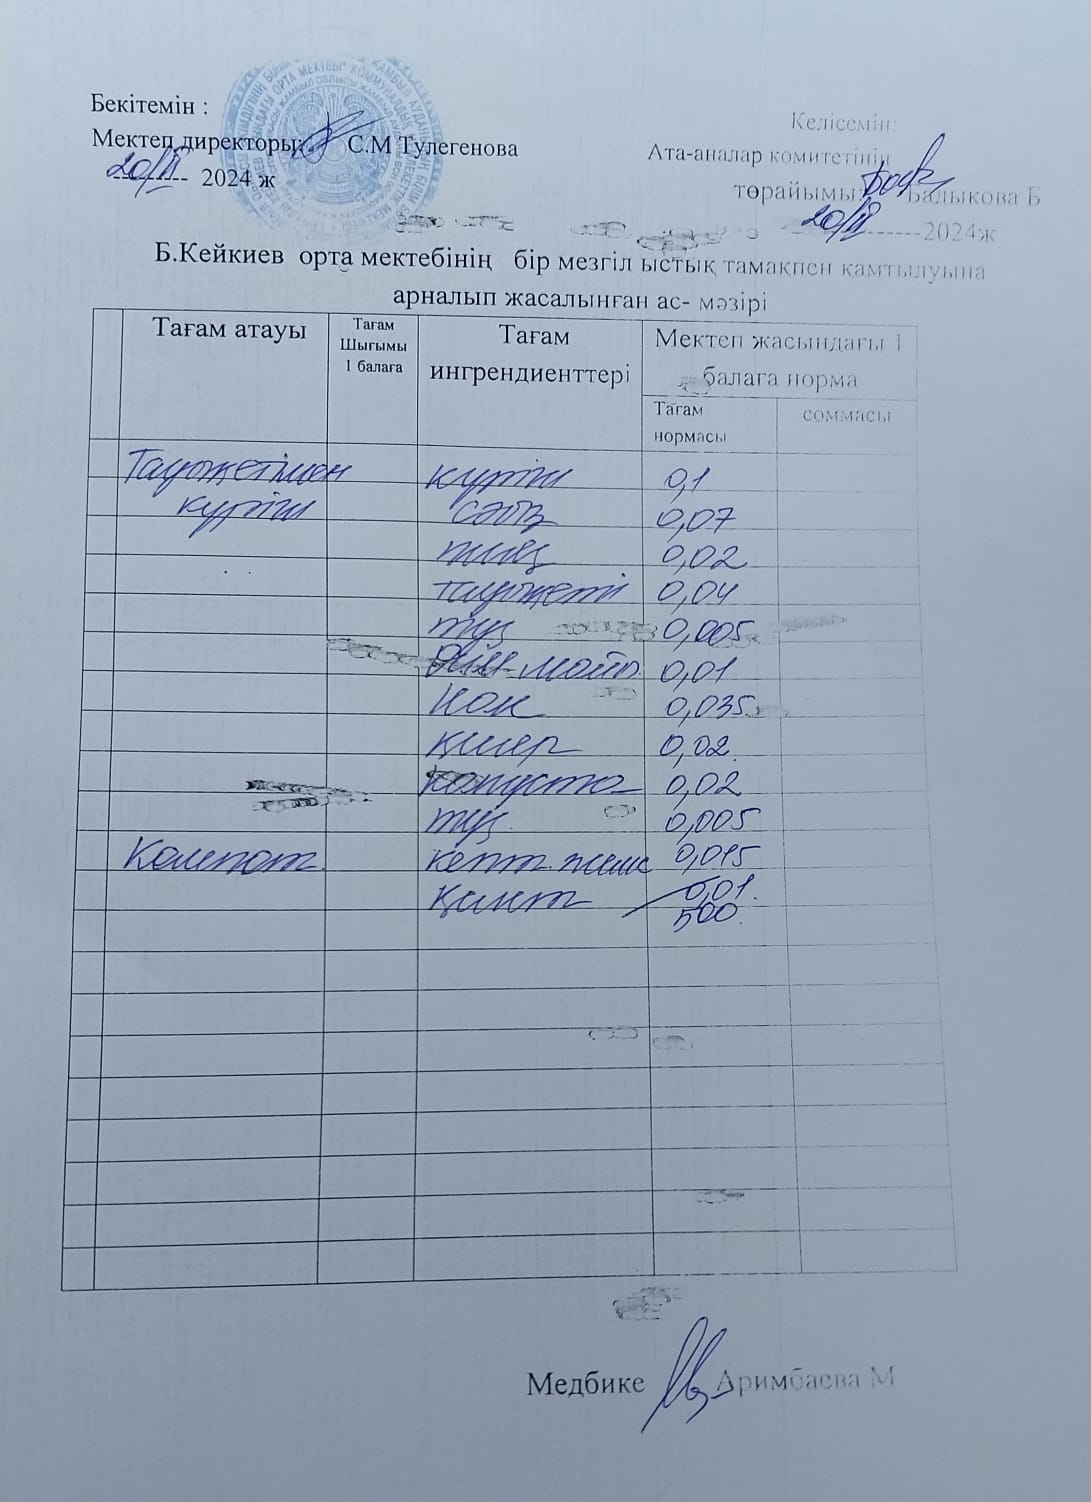 Бекітемін :
Келісемін:
Мектеп директоры: С.М Тулегенова
Ата-аналар комитетінің
20/ІІ 2024 ж
төрайымы: Бадыкова Б
20/ІІ ------2024ж
Б.Кейкиев орта мектебінің бір мезгіл ыстық тамақпен қамтылуына
арналып жасалынған ас- мәзірі
Тағам атауы
Тағам
Шығымы
1 балаға
Тағам
ингрендиенттері
Мектеп жасындағы 1
балаға норма
Тағам
нормасы
соммасы
Тауықетімен күріш 0,1
күріш сәбіз 0,07
пияз 0,02
тауықеті 0,04
тұз 0,005
өсім майы 0,01
Нан 0,035
қияр 0,02
капуста 0,02
тұз 0,005
Компот кепт жеміс 0,015
Қант 0,01
500
Медбике Аримбаева М